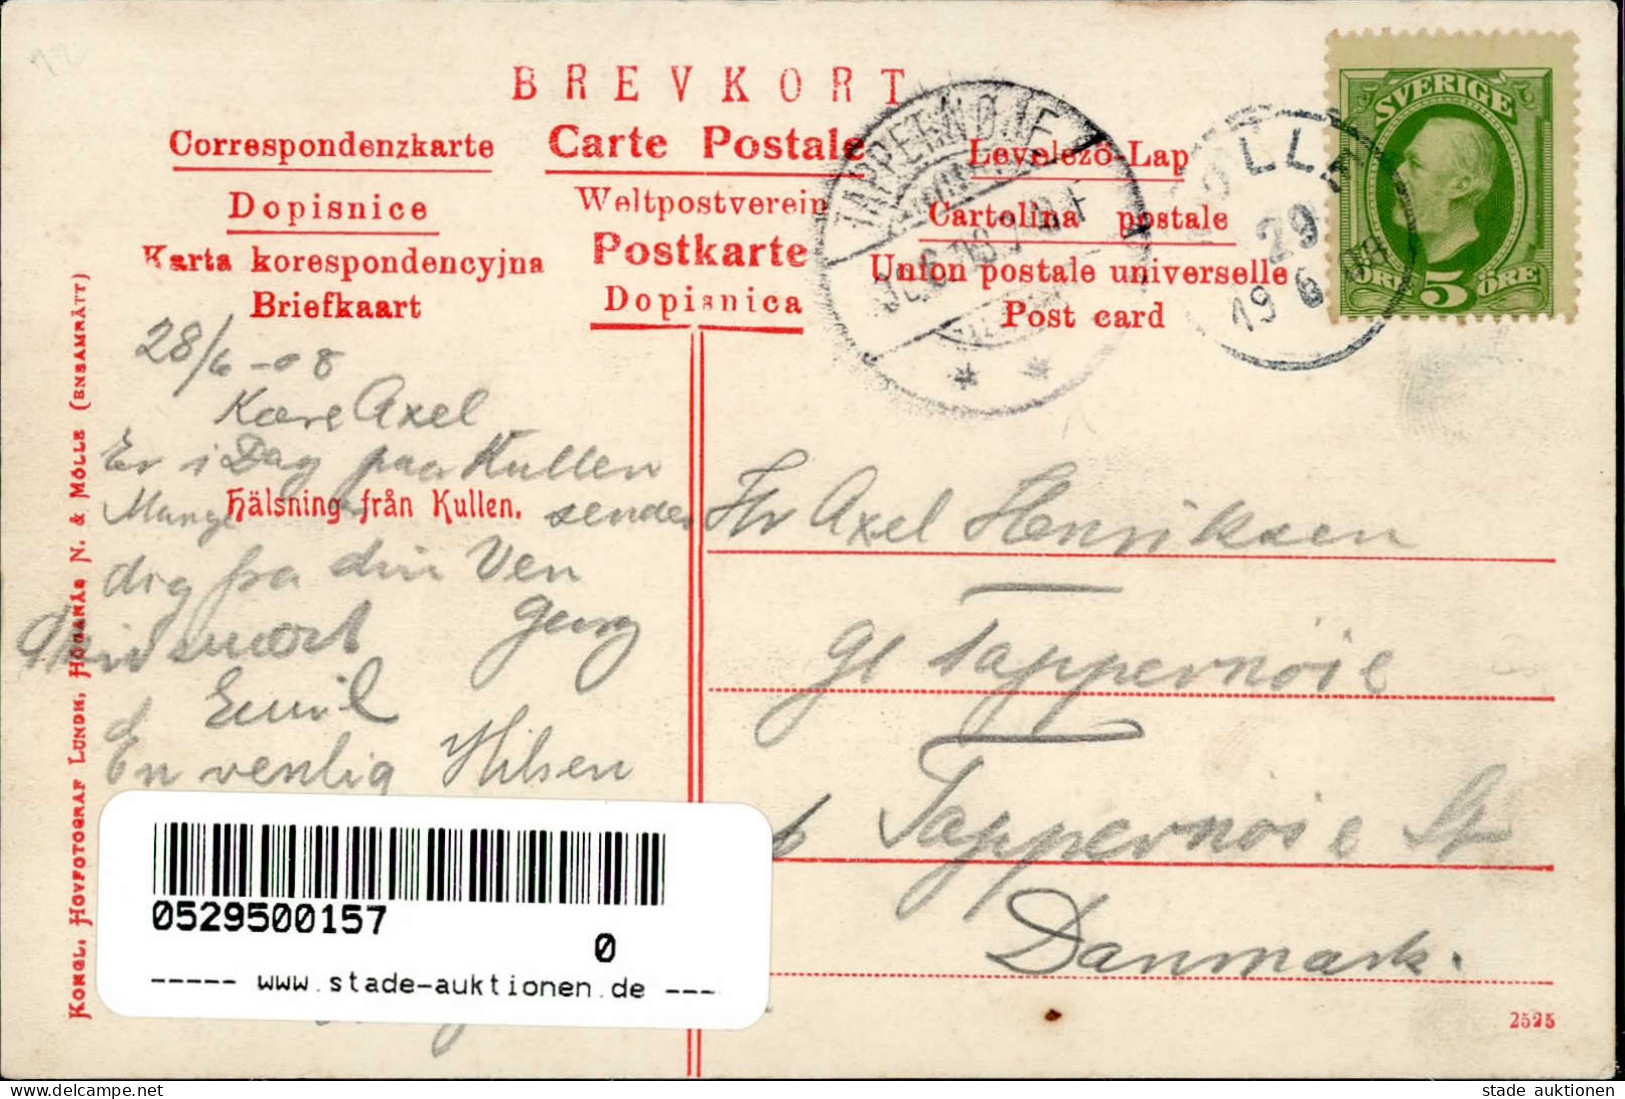 BREVKORT
Correspondenzkarte
Carte Postale
Levelező-Lap
Dopisnice
Weltpostverein
Cartolina postale
Karta korespondencyjna
Postkarte
Union postale universelle
Briefkaart
Dopisnica
Post card
TAPPERNØJE
MÖLLE
29
19 6 08
SVERIGE
ÖRE 5 ÖRE
28/6 - 08
Kære Axel
Er i Dag paa Kullen
Mange
Hälsning från Kullen.
sender
dig fra din Ven
Georg
Emil
En venlig Hilsen
Hr Axel Henriksen
Gl Tappernöie
p Tappernöie St
Danmark.
KONGL. HOVFOTOGRAF LUNDH, HÖGANÄS N. & MÖLLE (ENSAMRÄTT)
0529500157
0
----- www.stade-auktionen.de ----
2525
stade auktionen
www.delcampe.net